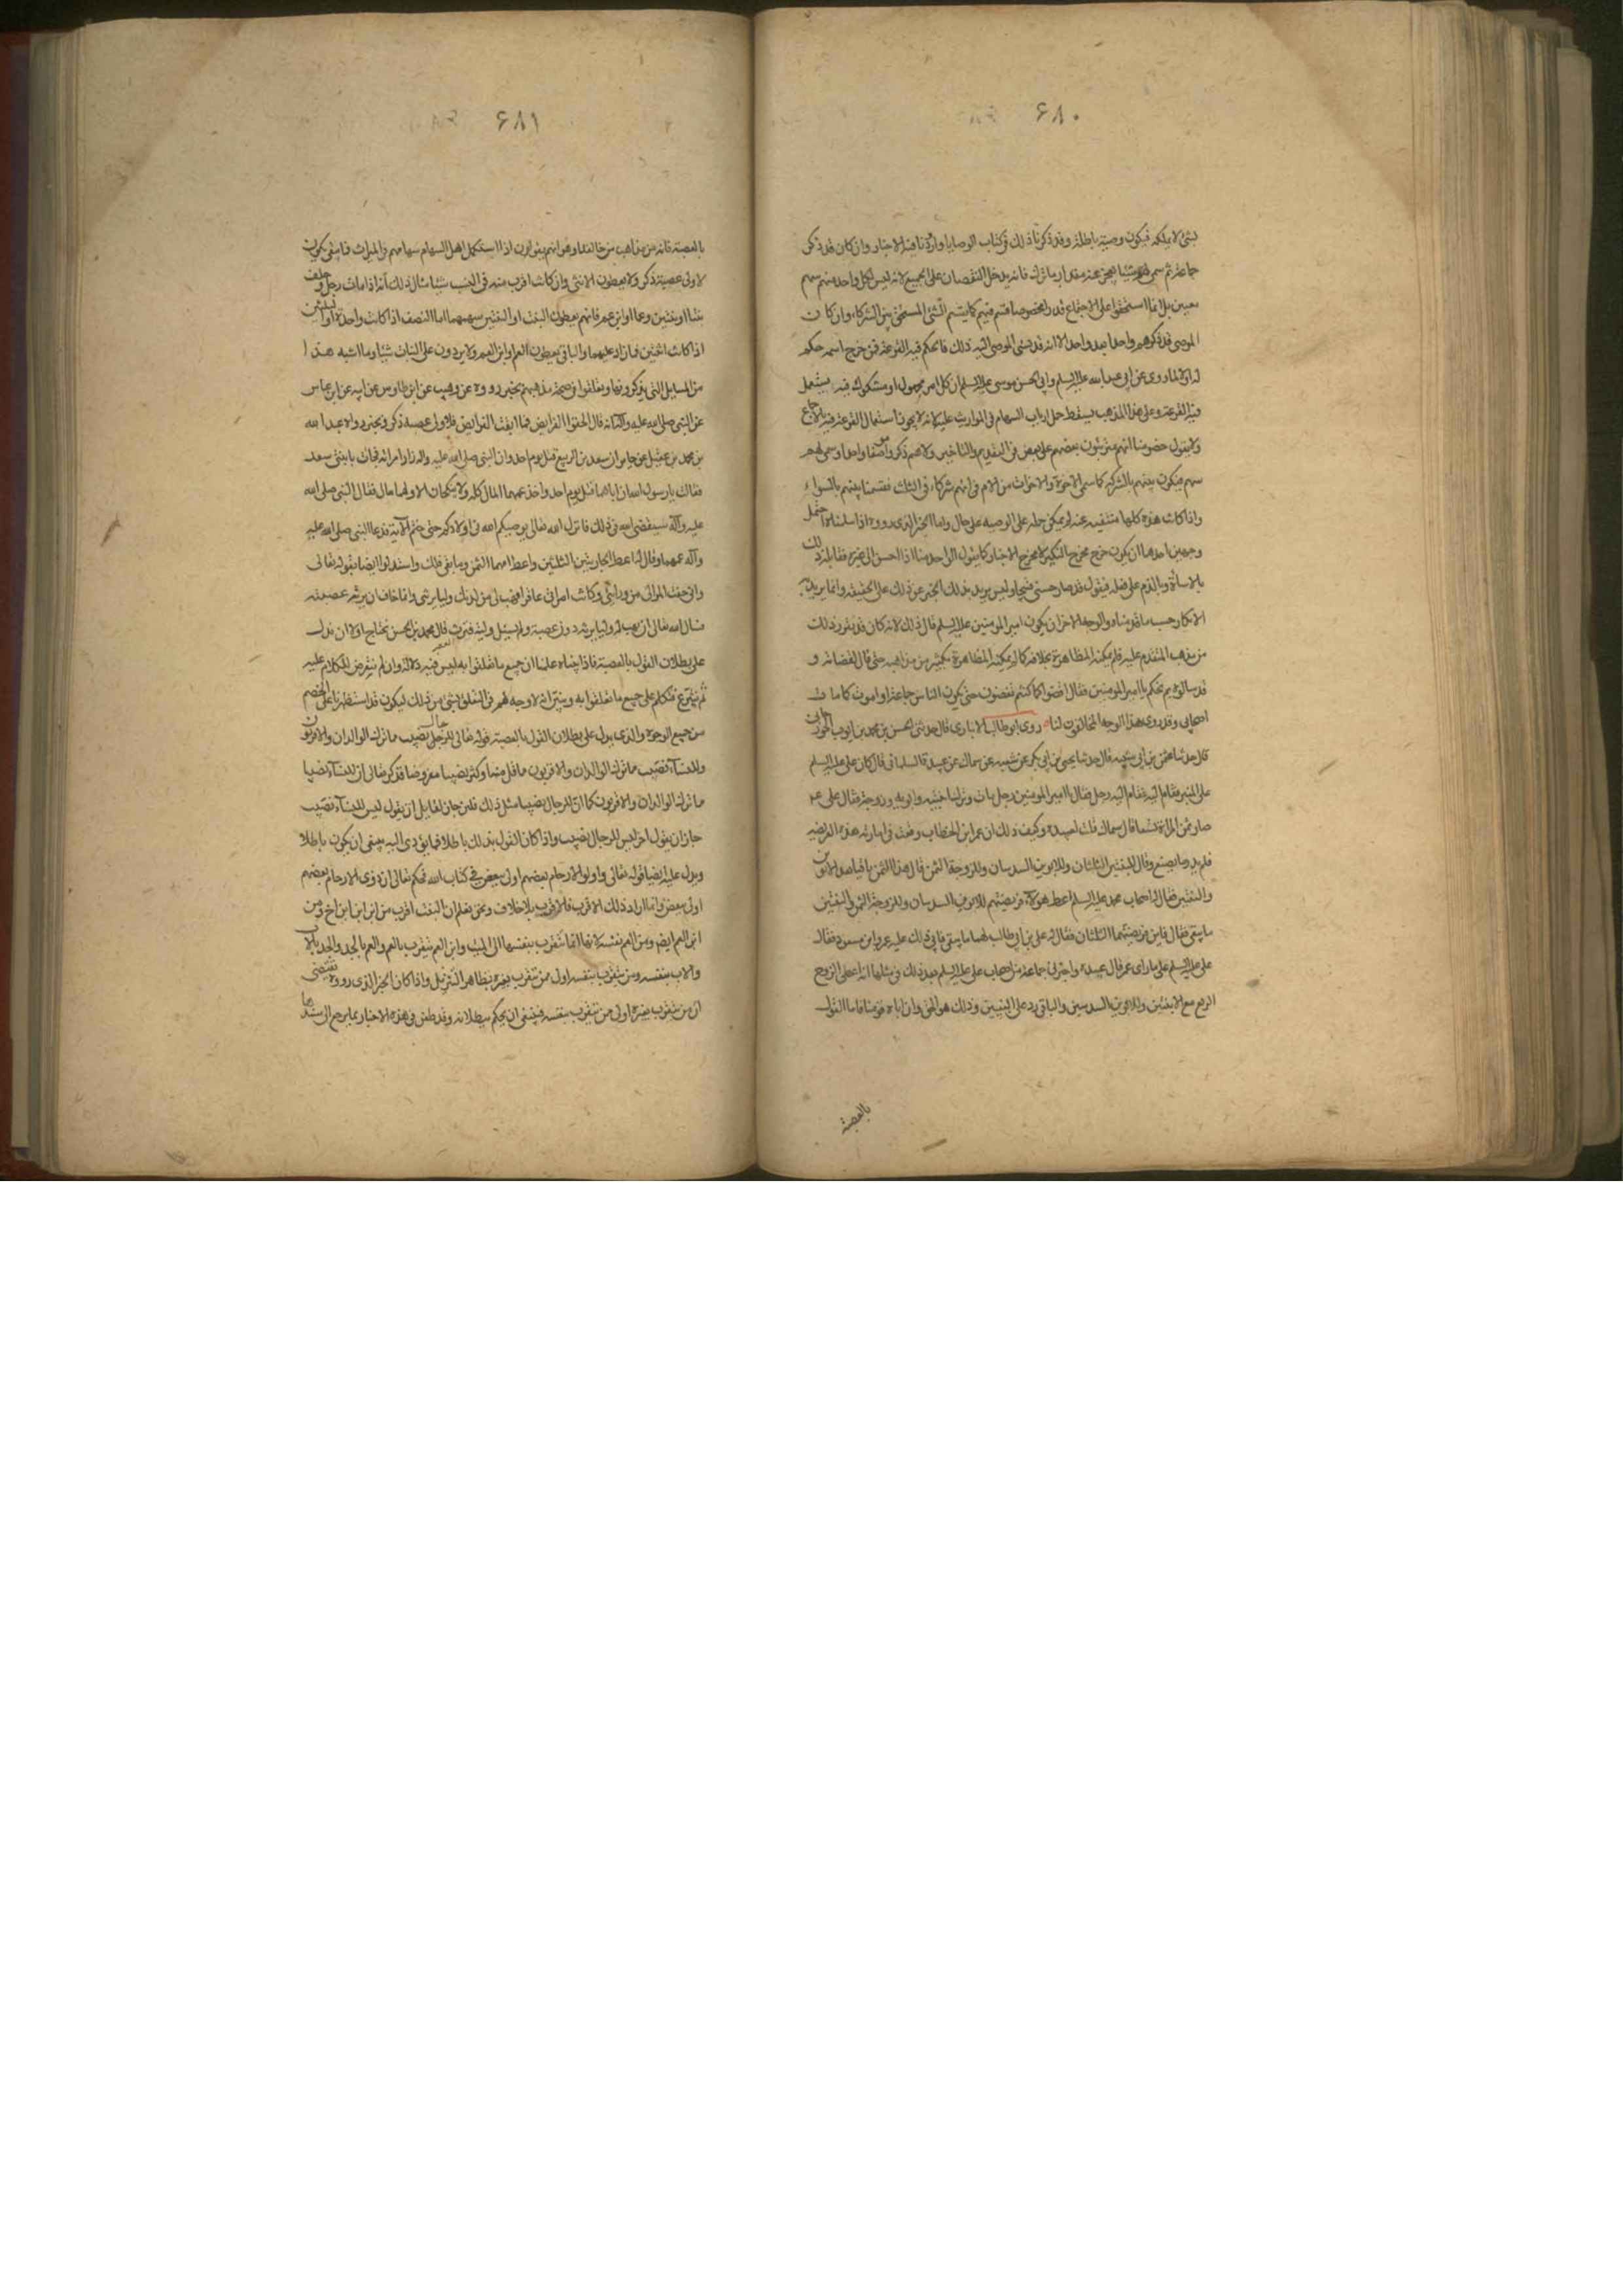 ۶۸۰
بشئ لا يملكه فيكون وصيته باطلة وقد ذكرنا ذلك في كتاب الوصايا واوردنا فيه الاخبار وان كان قد ذكر
جماعة ثم سمى لهم شيئا يعجز عنه مقدار ما ترك فانه يدخل النقصان على الجميع لانه ليس لكل واحد منهم سهم
معين بل انما استحقوا على الاجتماع قدرا مخصوصا فقسم فيهم كما يقسم الشئ المستحق بين الشركاء وان كان
الموصى قد ذكرهم واحدا بعد واحد الا انه قد نسى الموصى اليه ذلك فانا نحكم فيه القرعة فمن خرج اسمه حكم
له اولا لما روى عن ابى عبد الله عليه السلم وابى الحسن موسى عليه السلم ان كل امر مجهول او مشكوك فيه يستعمل
فيه القرعة وعلى هذا المذهب يسقط حمل ارباب السهام فى المواريث عليه لانه لا يجوز استعمال القرعة فيه بالاجماع
ولا نقول خصوصا انهم مترتبون بعضهم على بعض فى التقديم والتاخير ولا هم ذكروا صنفا واحدا وسمى لهم
سهم فيكون بينهم بالشركة كما سمى الاخوة والاخوات من الام فى انهم شركاء فى الثلث فقسمنا بينهم بالسواء
واذا كانت هذه كلها منتفيه عنه لم يمكن حمله على الوصيه على حال واما الخبر الذى رووه اذا سلمناه احتمل
وجهين احدهما ان يكون خرج مخرج النكير لا مخرج الاخبار كما يقول الواحد منا اذا احسن الى غيره فقابله ذلك
بالاساءة وبالذم على فعله فيقول قد صار حسنى قبيحا وليس يريد بذلك الخبر عن ذلك على الحقيقه وانما يريد به
الانكار حسب ما قدمناه والوجه الاخر ان يكون امير المومنين عليه السلم قال ذلك لانه كان قد تقرر ذلك
من مذهب المتقدم عليه فلم يمكنه المظاهرة بخلافه كما لم يمكنه المظاهرة بكثير من مذاهبه حتى قال لقضاته و
قد سالوه بم نحكم يا امير المومنين فقال اقضوا كما كنتم تقضون حتى يكون الناس جماعة او اموت كما مات
اصحابى وقد روى هذا الوجه المخالفون لنا روى ابو طالب الانبارى قال حدثنى الحسن بن محمد بن ايوب الجوزجانى
قال حدثنا عثمن بن ابى شيبه قال حدثنا يحيى بن ابى بكر عن شعبه عن سماك عن عبيدة السلمانى قال كان على عليه السلم
على المنبر فقام اليه رجل فقال يا امير المومنين رجل مات وترك ابنتيه وابويه وزوجة فقال على ع
صار ثمن المراة تسعا قال سماك قلت لعبيده وكيف ذلك قال ان عمر ابن الخطاب وقعت فى امارته هذه الفريضه
فلم يدر ما يصنع وقال للبنتين الثلثان وللابوين السدسان وللزوجة الثمن قال هذا الثمن باقيا بعد الابوين
والبنتين فقال له اصحاب محمد عليه السلم اعط هؤلاء فريضتهم للابوين السدسان وللزوجة الثمن وللبنتين
ما يبقى فقال فاين فريضتهما الثلثان فقال له على بن ابى طالب لهما ما يبقى فابى ذلك عليه عمر وابن مسعود فقال
على عليه السلم على ما راى عمر قال عبيده واخبرنى جماعة من اصحاب على عليه السلم بعد ذلك فى مثلها انه اعطى الزوج
الربع مع الابنتين وللابوين السدسين والباقى رد على البنتين وذلك هو الحق وان اباه قومنا فاما القول
بالعصبة
۶۸۱
بالعصبة فانه من مذاهب من خالفنا وهو انهم يقولون اذا استكمل اهل السهام سهامهم فى الميراث فما بقى يكون
لاولى عصبة ذكر ولا يعطون الانثى وان كانت اقرب منه فى النسب شيئا مثال ذلك انه اذا مات رجل وخلف
بنتا او بنتين وعما او ابن عم فانهم يعطون البنت او البنتين سهمهما اما النصف اذا كانت واحدة او الثلثين
اذا كانت اثنتين فما زاد عليهما والباقى يعطون العم وابن العم ولا يردون على البنات شيئا وما اشبه هذا
من المسايل التى يذكرونها وتعلقوا فى صحة مذهبهم بخبر رووه عن وهيب عن ابن طاوس عن ابيه عن ابن عباس
عن النبى صلى الله عليه وآله انه قال الحقوا الفرايض فما ابقت الفرايض فلاولى عصبة ذكر وبخبر رواه عبد الله
بن محمد بن عقيل عن جابر ان سعد بن الربيع قتل يوم احد وان النبى صلى الله عليه واله زار امراته فجاءت بابنتى سعد
فقالت يا رسول الله ان اباهما قتل يوم احد واخذ عمهما المال كله ولا ينكحان الا ولهما مال فقال النبى صلى الله
عليه وآله سيقضى الله فى ذلك فانزل الله تعالى يوصيكم الله فى اولادكم حتى ختم الآية فدعا النبى صلى الله عليه
وآله عمهما وقال له اعط الجاريتين الثلثين واعط امهما الثمن وما بقى فلك واستدلوا ايضا بقوله تعالى
وانى خفت الموالى من ورائى وكانت امراتى عاقرا فهب لى من لدنك وليا يرثنى وانما خاف ان يرثه عصبته
فسال الله تعالى ان يهب له وليا يرثه دون عصبة ولم يسئل ولية فترث قال محمد بن الحسن نحتاج اولا ان ندل
على بطلان القول بالعصبة فاذا بيناه علمنا ان جميع ما تعلقوا به ليس فيه دلالة وان لم نتعرض للكلام عليه
ثم نشرع فنتكلم على جميع ما تعلقوا به ونبين انه لا وجه لهم فى التعلق بشئ من ذلك ليكون قد استظهرنا على الخصم
من جميع الوجوه والذى يدل على بطلان القول بالعصبة قوله تعالى للرجال نصيب مما ترك الوالدان والاقربون
وللنساء نصيب مما ترك الوالدان والاقربون مما قل منه او كثر نصيبا مفروضا فذكر تعالى ان للنساء نصيبا
مما ترك الوالدان والاقربون كما ان للرجال نصيبا مثل ذلك فلئن جاز لقايل ان يقول ليس للنساء نصيب
جاز ان يقول اخر ليس للرجال نصيب واذا كان القول بذلك باطلا فما يؤدى اليه ينبغى ان يكون باطلا
ويدل عليه ايضا قوله تعالى واولو الارحام بعضهم اولى ببعض فى كتاب الله فحكم تعالى ان ذوى الارحام بعضهم
اولى ببعض وانما اراد ذلك الاقرب فالاقرب بلا خلاف ونحن نعلم ان البنت اقرب من ابن ابن اخ ومن
ابن العم ايضا ومن العم نفسه لانها انما تتقرب بنفسها الى الميت وابن العم يتقرب بالعم والعم بالجد والجد بالاب
والاب بنفسه ومن يتقرب بنفسه اولى ممن يتقرب بغيره بظاهر التنزيل واذا كان الخبر الذى رووه يقتضى
ان من يتقرب بغيره اولى ممن يتقرب بنفسه فينبغى ان يحكم ببطلانه وقد طعن فى هذه الاخبار بما يرجع الى سندها